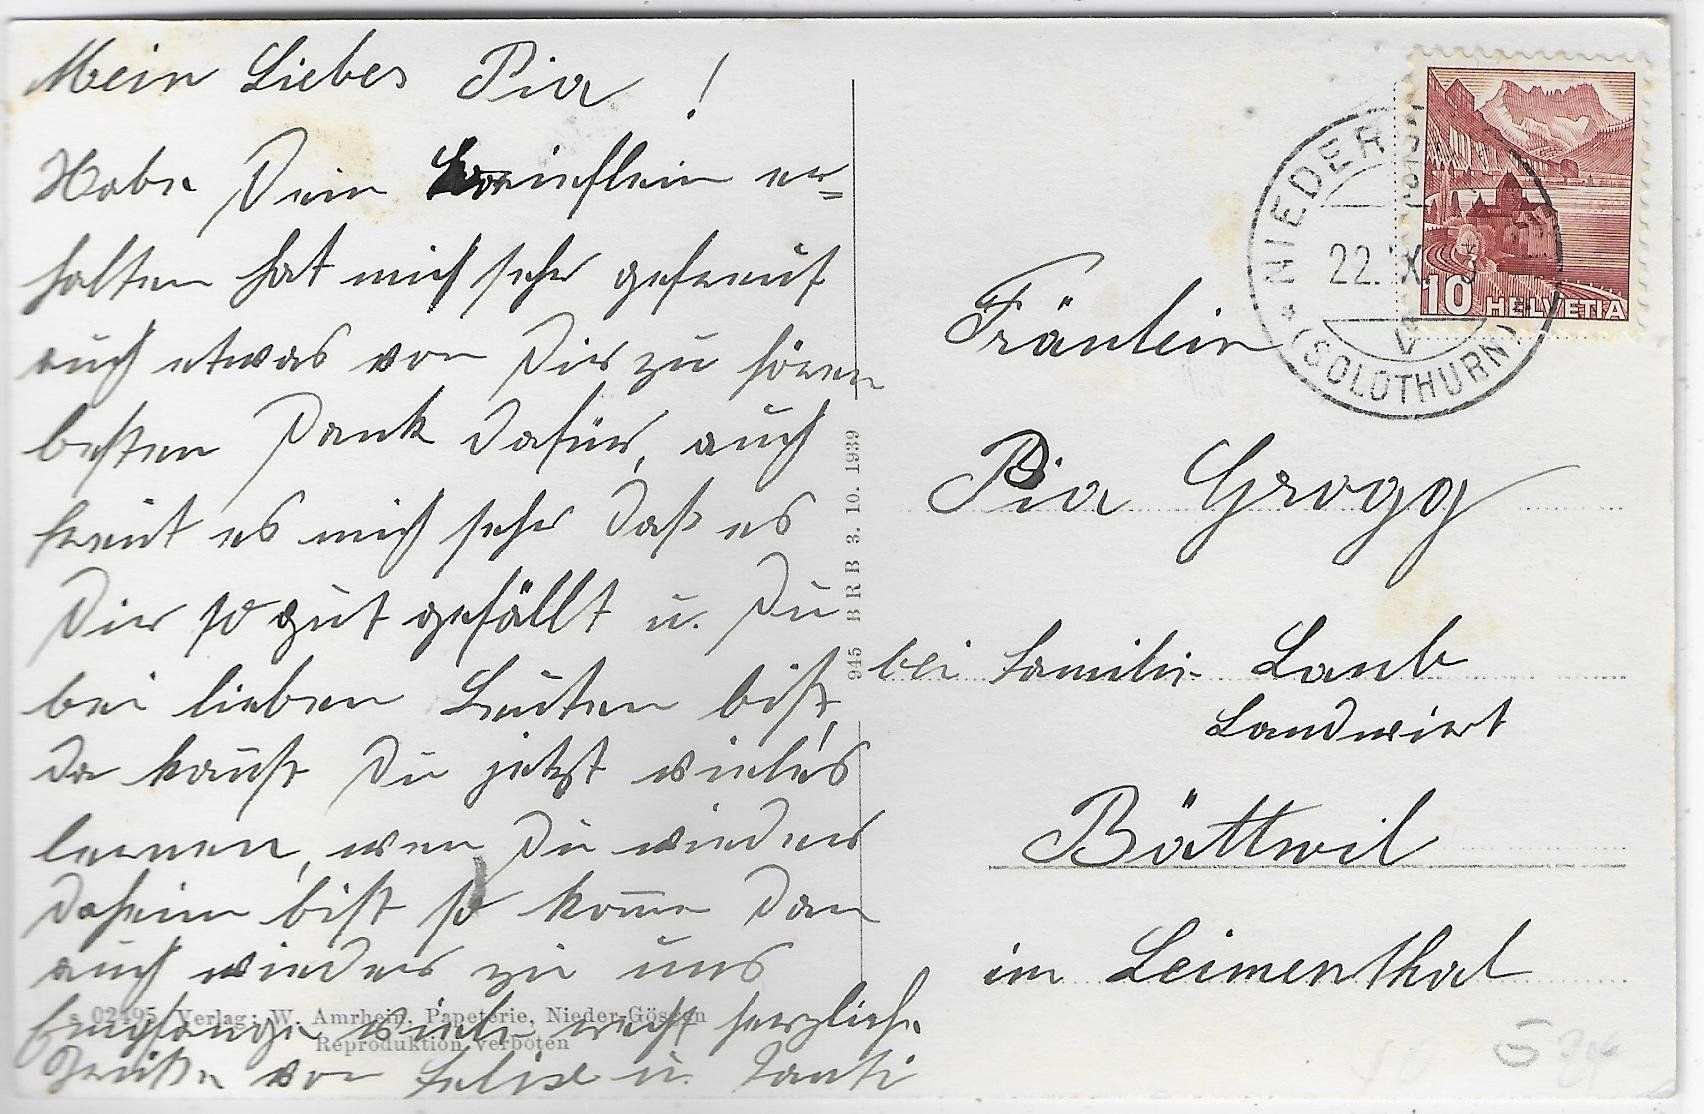 Mein Liebes Pia !
Habe Dein Brieflein er=
halten hat mich sehr gefreut
auch etwas von Dir zu hören
besten Dank dafür, auch
freut es mich sehr daß es
Dir so gut gefällt u. Du
bei lieben Leuten bist,
da kanst Du jetzt vieles
lernen, wen Du wieder
daheim bist so kome dan
auch wieder zu uns
Empfange viele recht herzliche
Grüße von Felix u. Tanti
s 02495 Verlag: W. Amrhein, Papeterie, Nieder-Gösgen
Reproduktion verboten
945 B R B 3. 10. 1939
NIEDER
22. IX.
(SOLOTHURN)
10 HELVETIA
Fräulein
Pia Grogg
bei Familie Laub
Landwirt
Bättwil
im Leimenthal